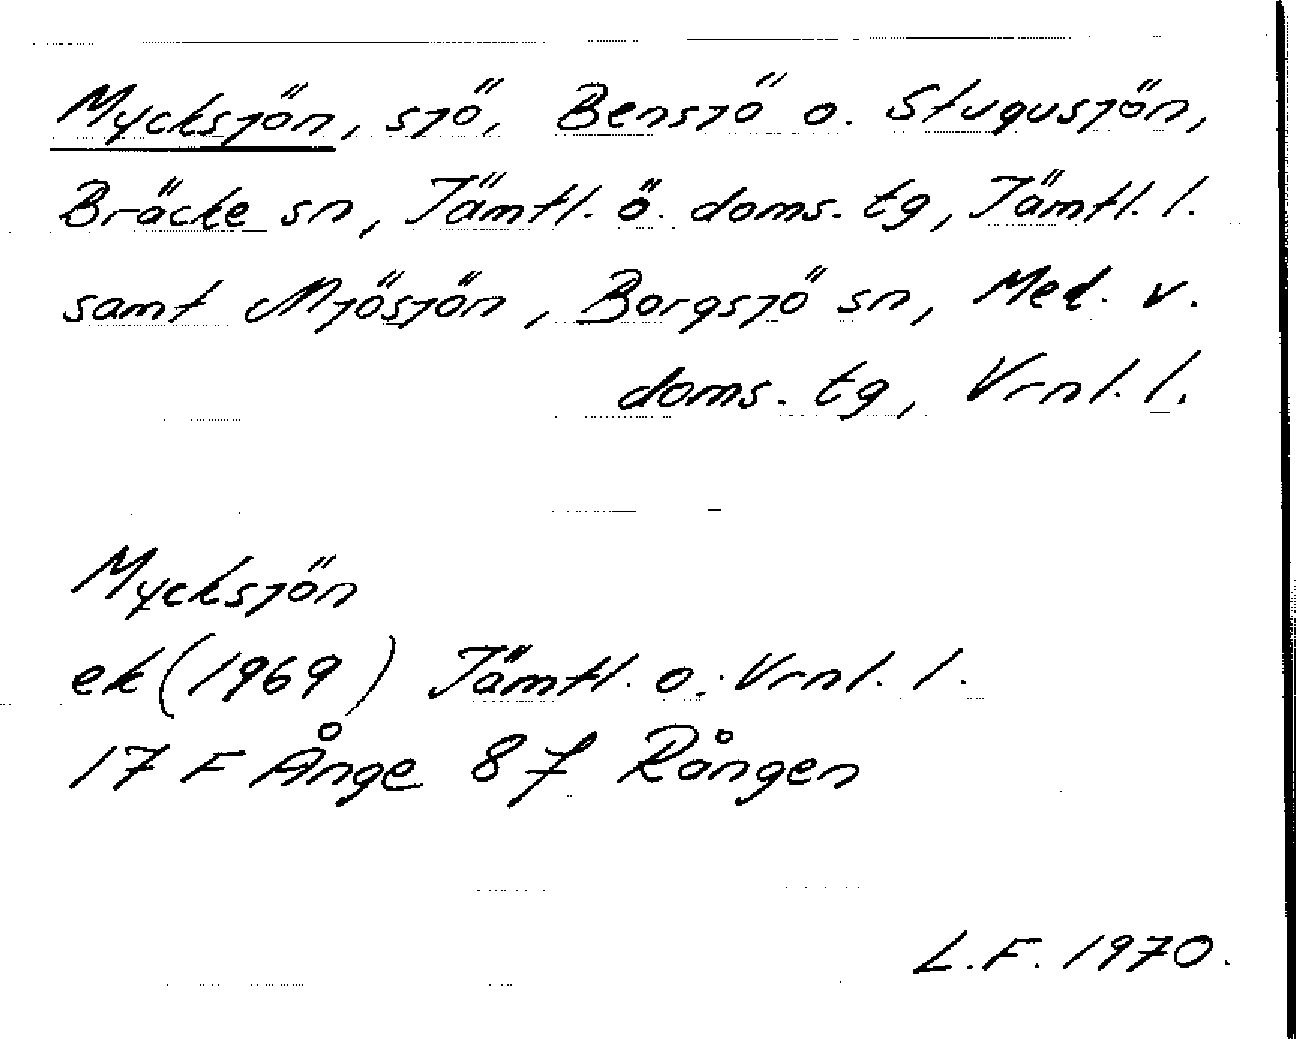 Mycksjön, sjö, Bensjö o. Stugusjön,
Bräcke sn, Jämtl. ö. doms. tg, Jämtl. l.
samt Mjösjön, Borgsjö sn, Med. v.
doms. tg, Vrnl. l.
Mycksjön
ek (1969) Jämtl. o. Vrnl. l.
17 F Ånge 8 f Rången
L.F. 1970.